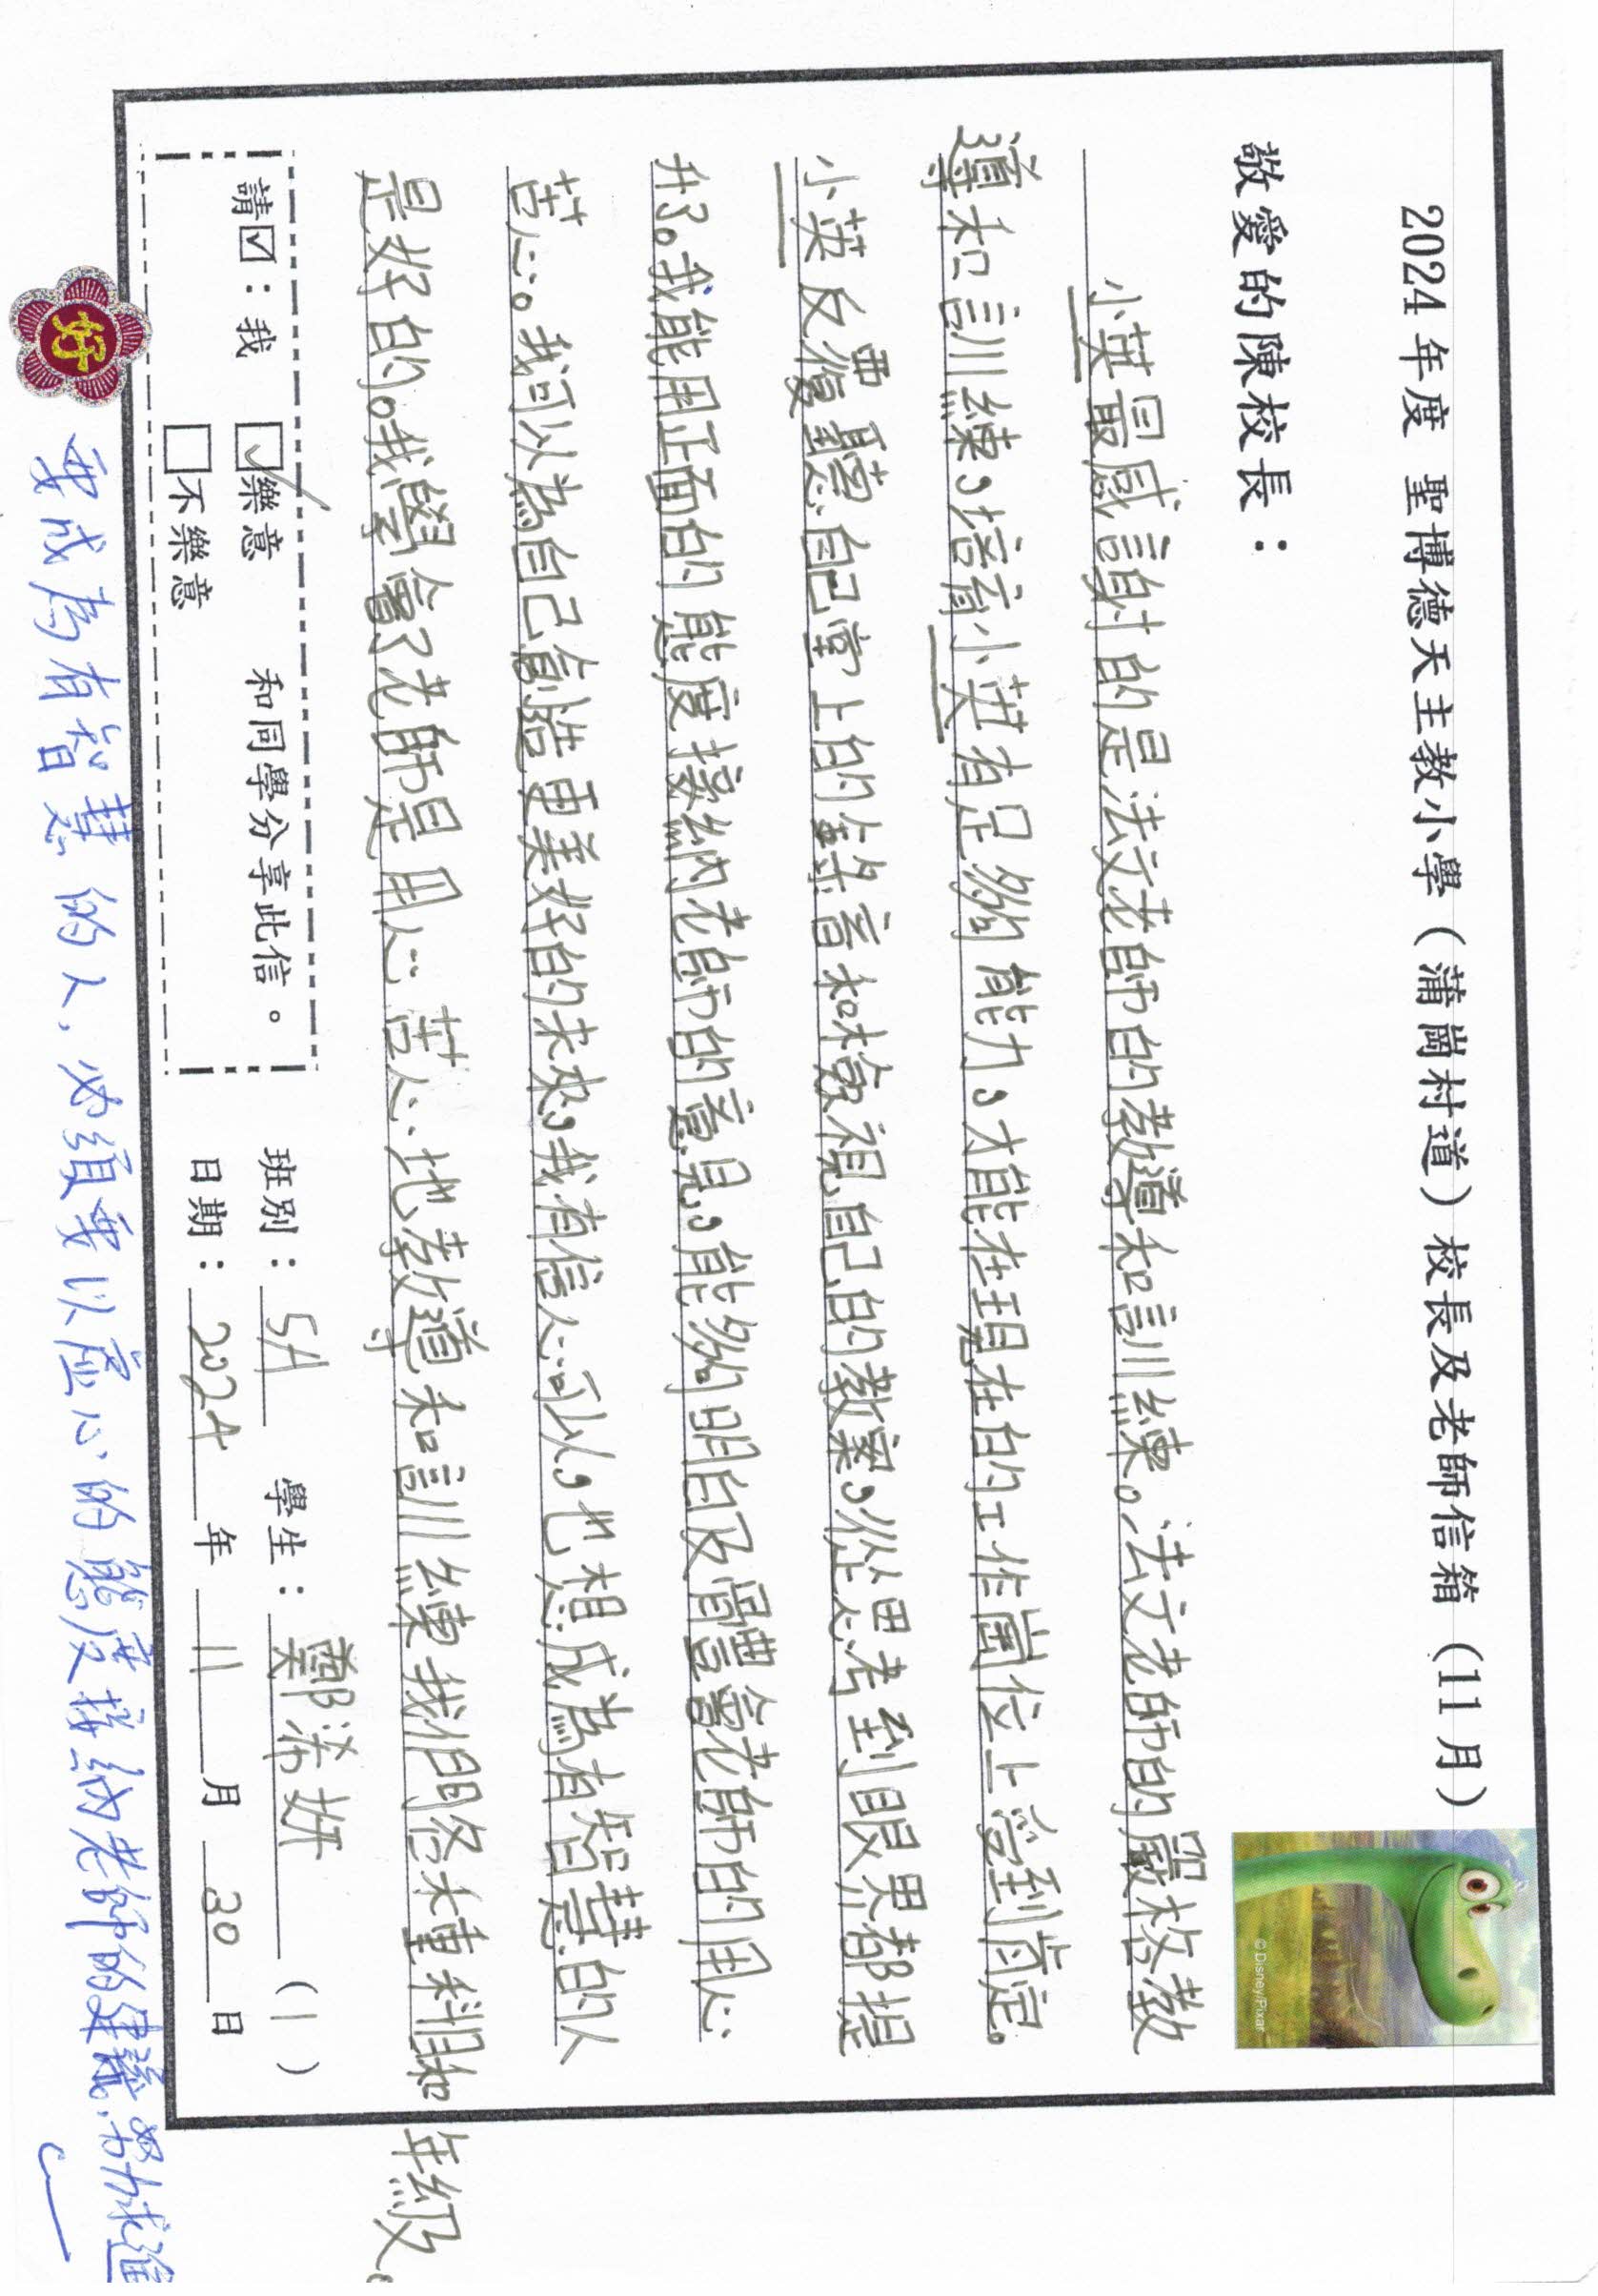 2024 年度 聖博德天主教小學（蒲崗村道）校長及老師信箱（11 月）
敬愛的陳校長：
小英最感謝的是法文老師的教導和訓練。法文老師的嚴格教
導和訓練，培育小英有足夠能力，才能在現在的工作崗位上受到肯定。
小英反覆聽自己堂上的錄音和檢視自己的教案，從思考到眼界都提
升了。我能用正面的態度接納老師的意見，能夠明白及體會老師的用心
苦心。我可以為自己創造更美好的未來，我有信心可以，也想成為有智慧的人
是好的。我學會了老師是用心苦心地教導和訓練我們各種科目和
年級。
請☑：我 ☑樂意 和同學分享此信。
□不樂意
班別：5A 學生：鄭浠妍（1）
日期：2024年11月30日
好
要成為有智慧的人，必須要以虛心的態度接納老師的建議，努力求進
© Disney/Pixar